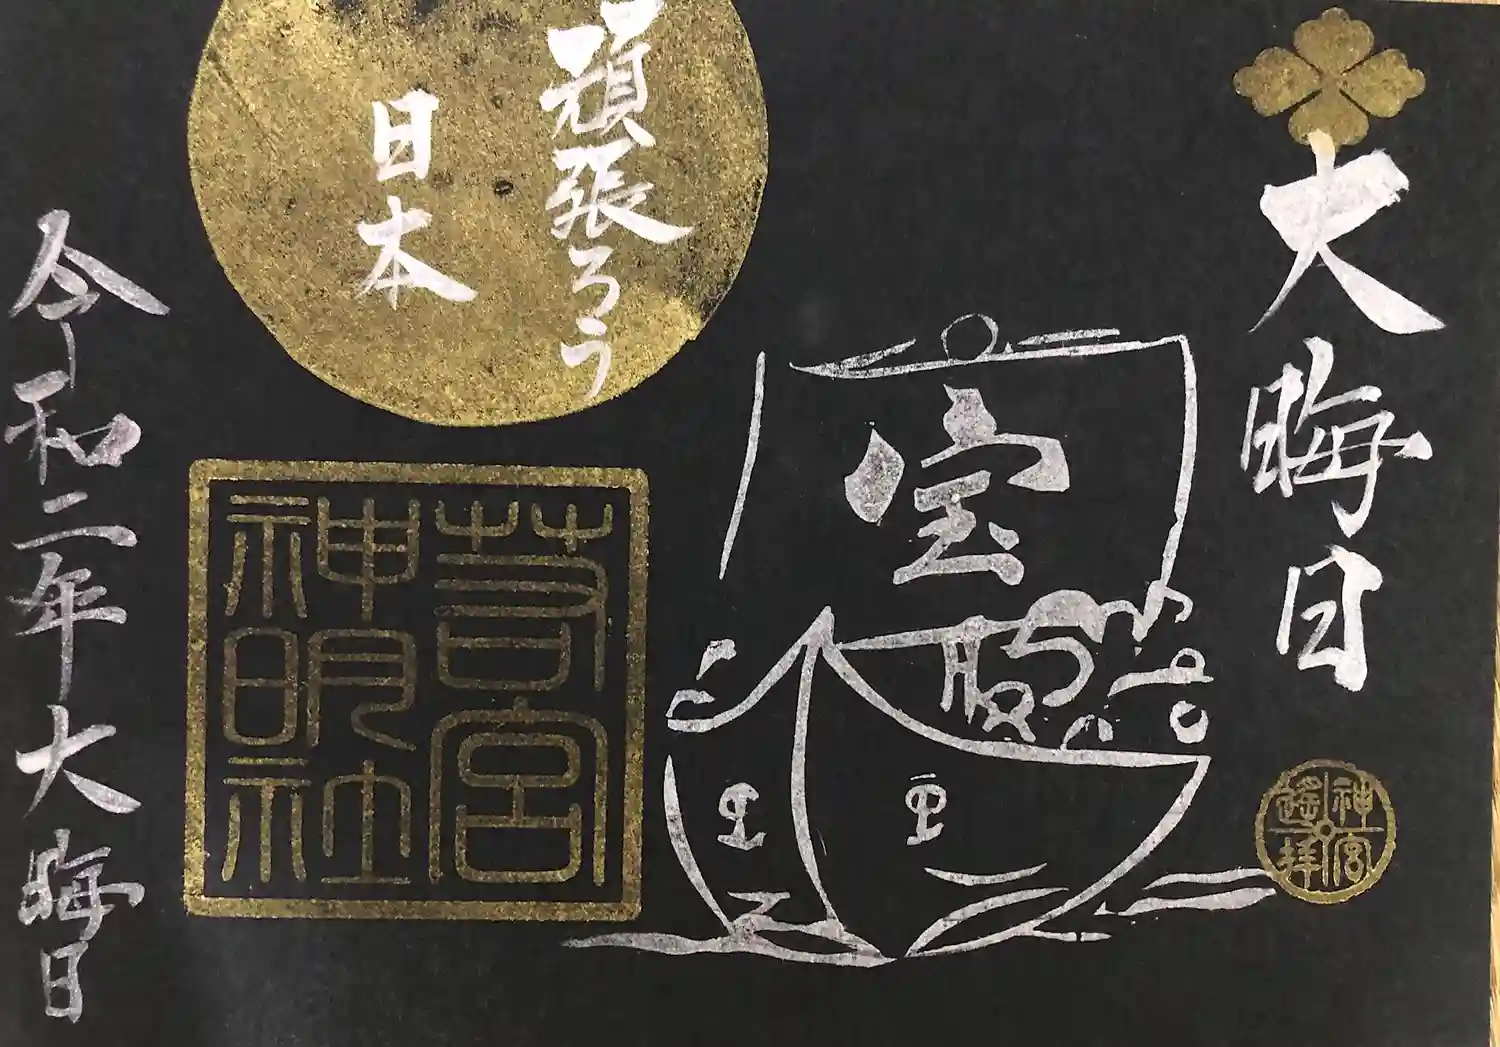 大晦日
神宮
遙拝
宝
頑張ろう
日本
若宮
神明社
令和二年大晦日